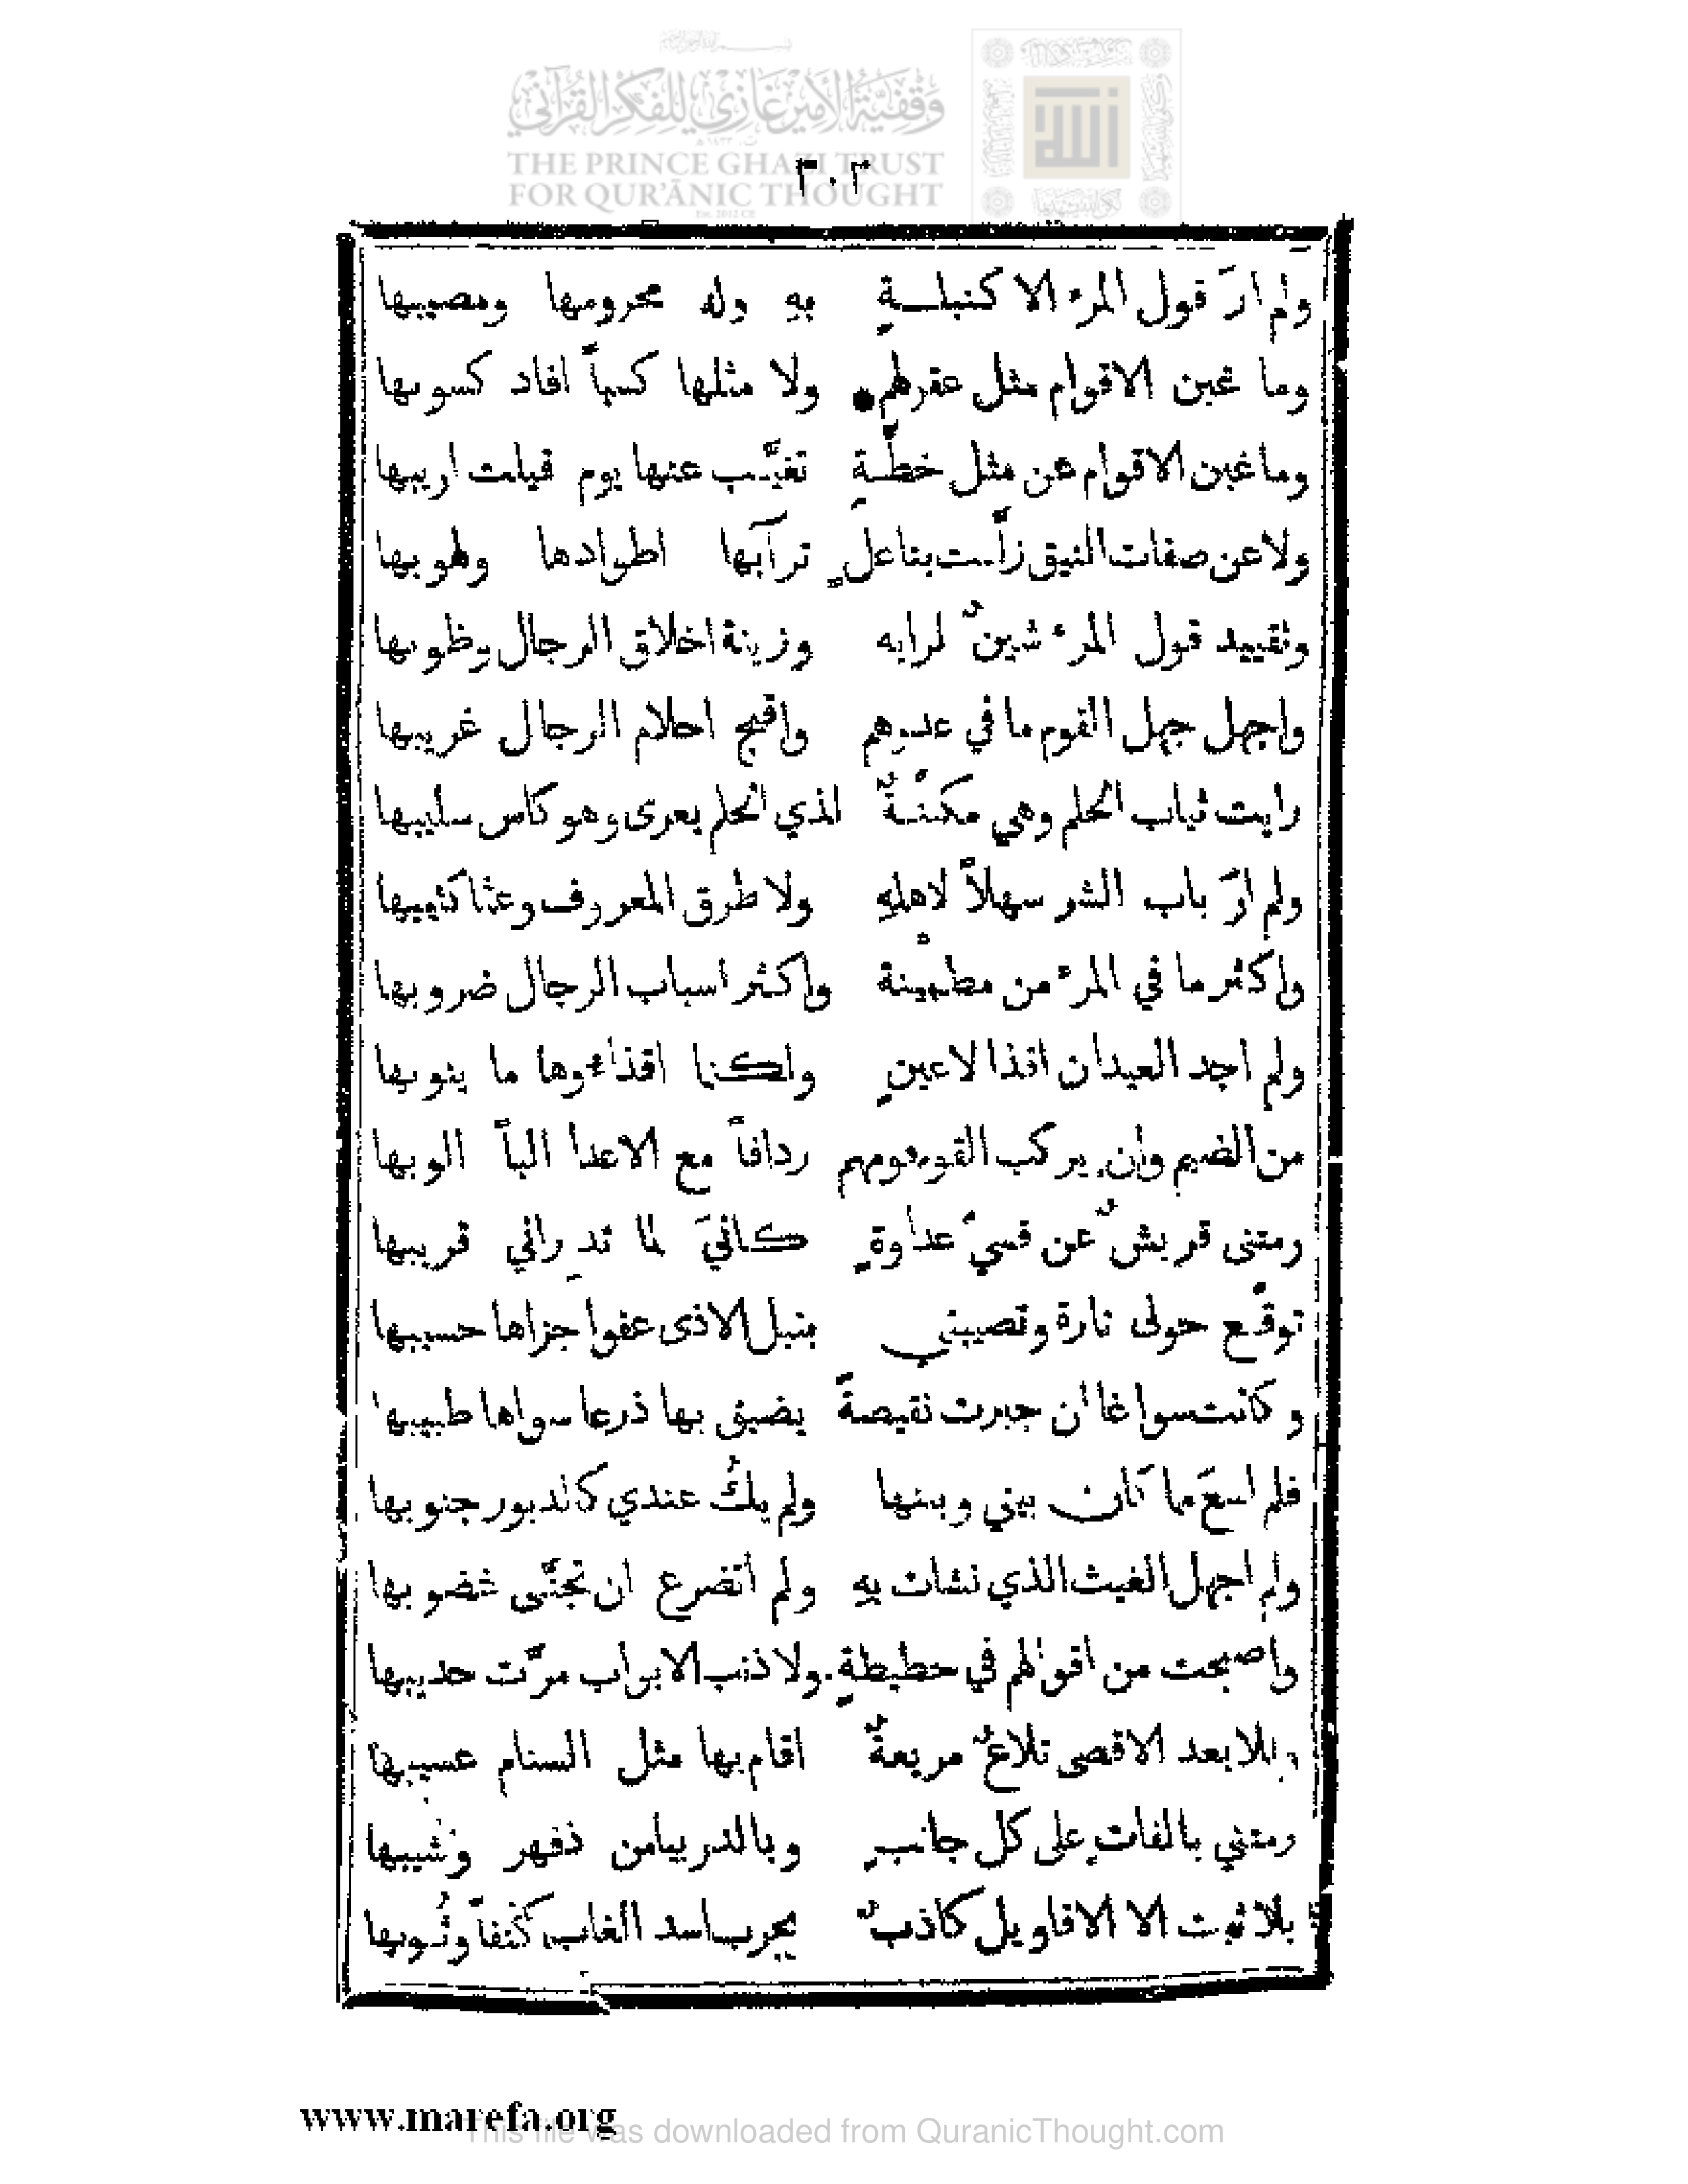 وقفية الأمير غازي للفكر القرآني
THE PRINCE GHAZI TRUST
FOR QUR'ĀNIC THOUGHT
Est. 2012 CE
٣٠٣
ولم ارَ قول المرء الا كنبلــةٍ به وله محرومها ومصيبها
وما غبن الاقوام مثل عقولهم ولا مثلها كسباً افاد كسوبها
وما غبن الاقوام عن مثل خطّــةٍ تغيّــب عنها يوم قيلت اريبها
ولا عن صفات النيق زلّــت بناعلٍ ترآبها اطوادها ولهوبها
وتقييد قول المرء شينٌ لرايه وزينة اخلاق الرجال وظوبها
واجهل جهل القوم ما في عدوهم واقبح احلام الرجال غريبها
رايت ثياب الحلم وهي مكنّــةٌ لذي الحلم يعرى وهو كاس سليبها
ولم ارَ باب الشر سهلاً لاهله ولا طرق المعروف وعثا كثيبها
واكثر ما في المرء من مطمئنة واكثر اسباب الرجال ضروبها
ولم اجد العيدان اقذا لاعينٍ ولكنا اقذاءوها ما ينوبها
من الضيم وان يركب القوم قومهم ردافاً مع الاعدا الباً الوبها
رمتنى قريشٌ عن قسيّ عداوةٍ كانيَ لما تدر اني قريبها
توقّــع حولى تارة وتصيبني بنبل الاذى عفوا جزاها حسيبها
وكانت سواغا ان جبرت نقيصةً يضيق بها ذرعا سواها طبيبها
فلم اسعَ مما كان بيني وبينها ولم يكُ عندي كالدبور جنوبها
ولم اجهل الغيث الذي نشات به ولم اتضرع ان تجنّــى غضوبها
واصبحت من اقوالهم في خطيطةٍ ولا ذنب الابواب مرّت جديبها
وللابعد الاقصى تلاعٌ مريعةٌ اقام بها مثل السنام عسيبها
رمتني بالفات على كل جانبٍ وبالدربيا من ذفهر وشيبها
بلا ثبت الا الاقاويل كاذبٌ يحرب اسد الغاب كفتاً وثُــوبها
www.marefa.org
This file was downloaded from QuranicThought.com